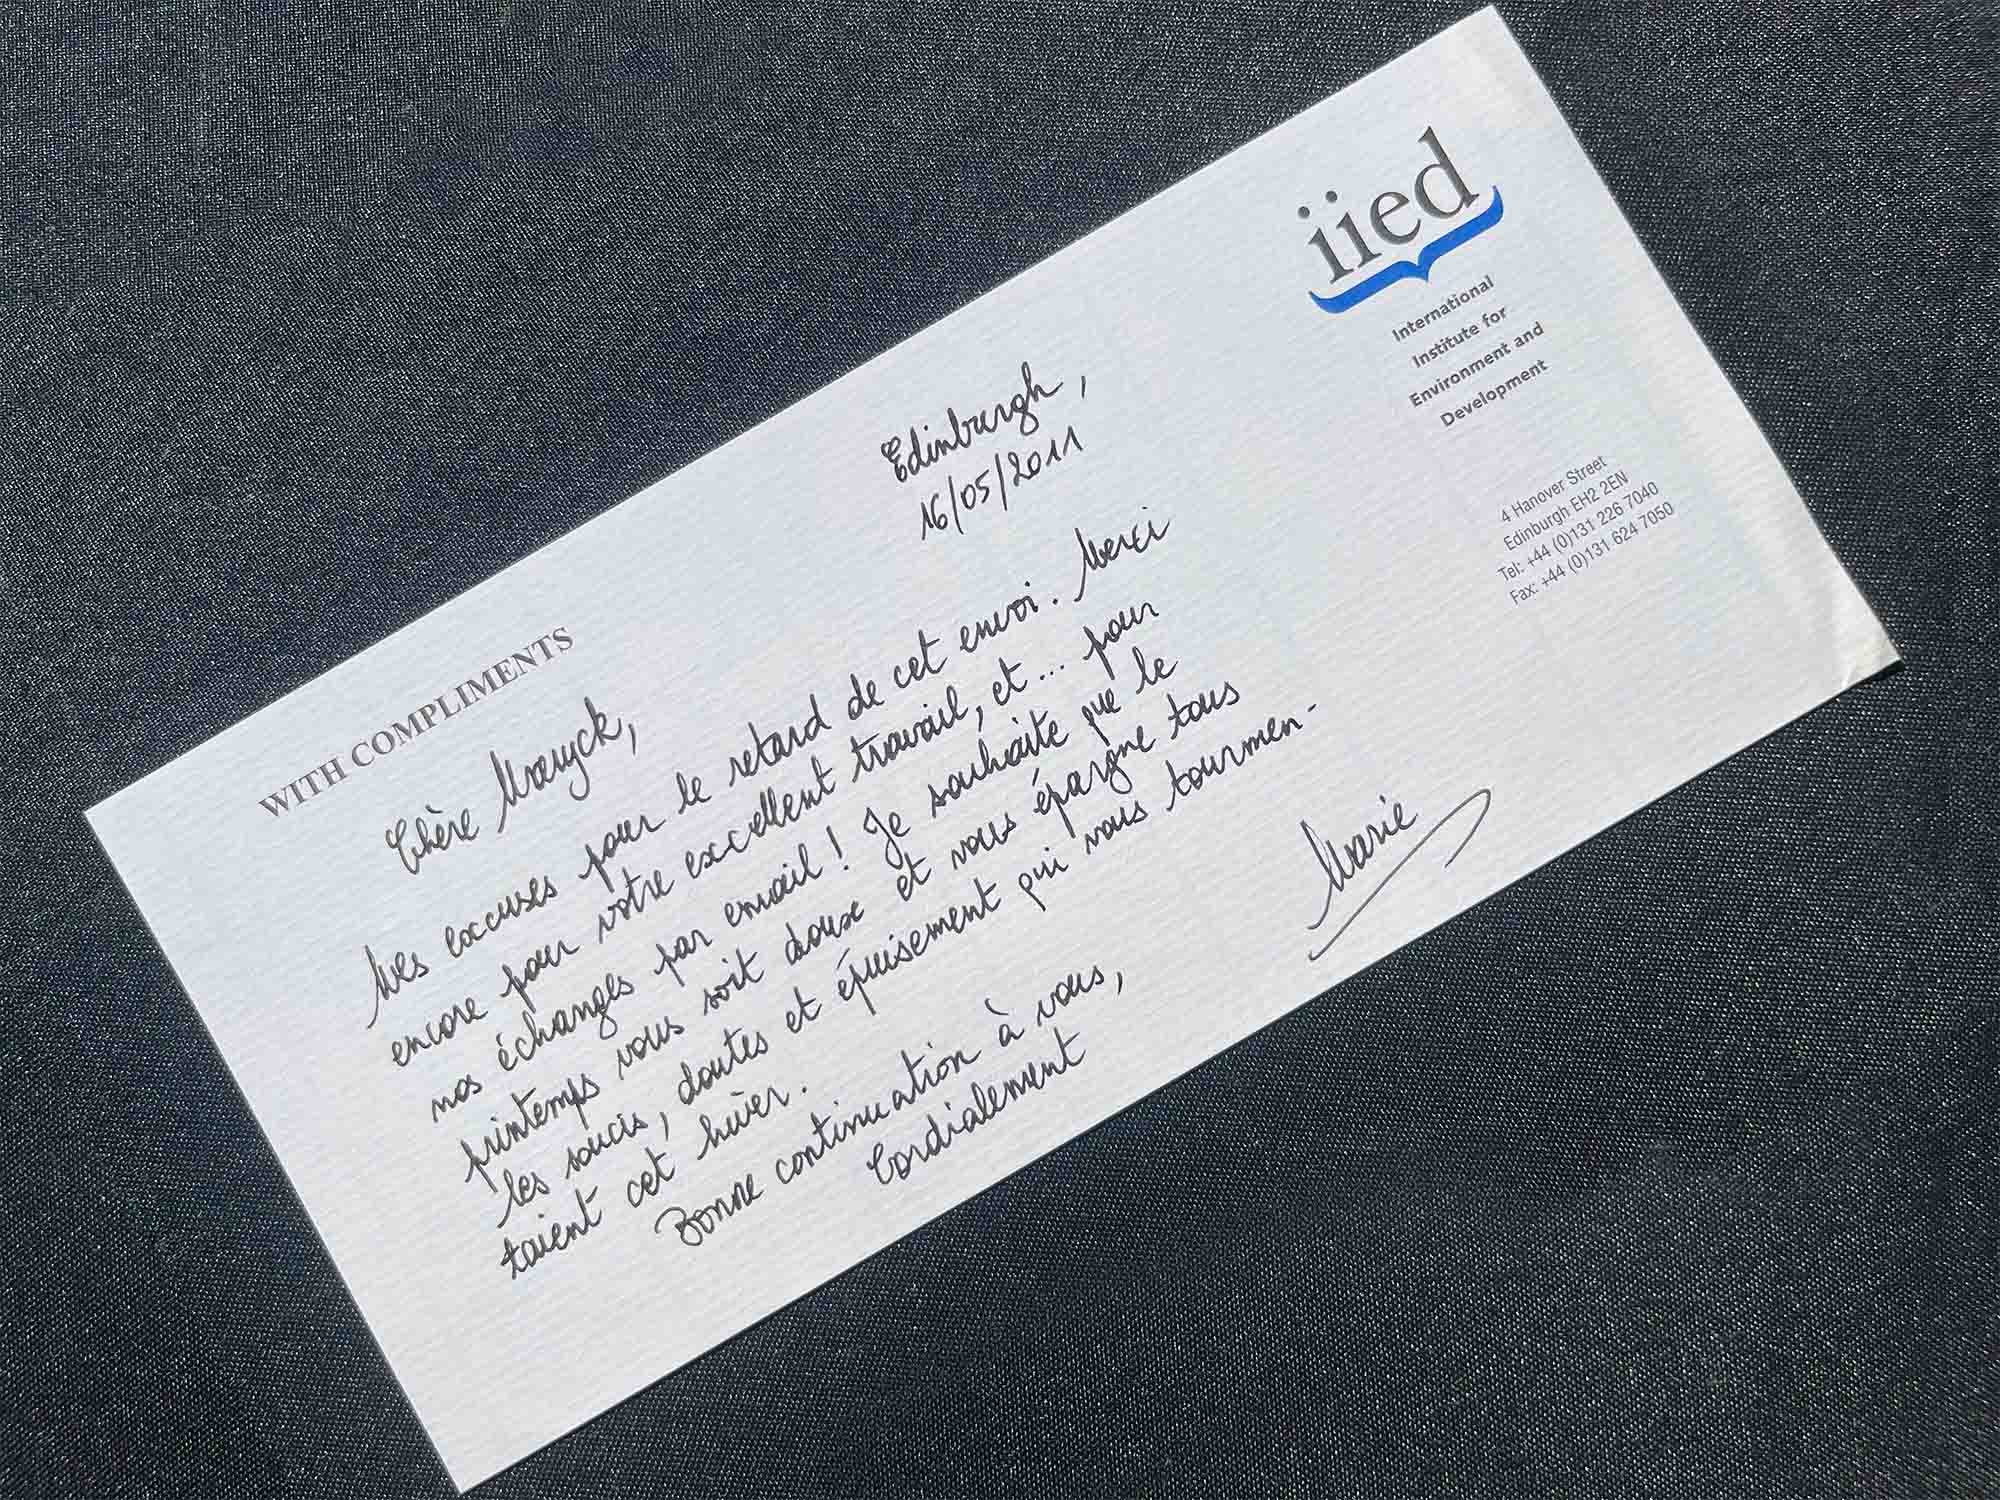 iied
International
Institute for
Environment and
Development
4 Hanover Street
Edinburgh EH2 2EN
Tel: +44 (0)131 226 7040
Fax: +44 (0)131 624 7050
WITH COMPLIMENTS
Edinburgh,
16/05/2011
Chère Maryck,
Mes excuses pour le retard de cet envoi. Merci
encore pour votre excellent travail, et... pour
nos échanges par email ! Je souhaite que le
printemps vous soit doux et vous épargne tous
les soucis, doutes et épuisement qui vous tourmen-
taient cet hiver.
Bonne continuation à vous,
Cordialement
Marie